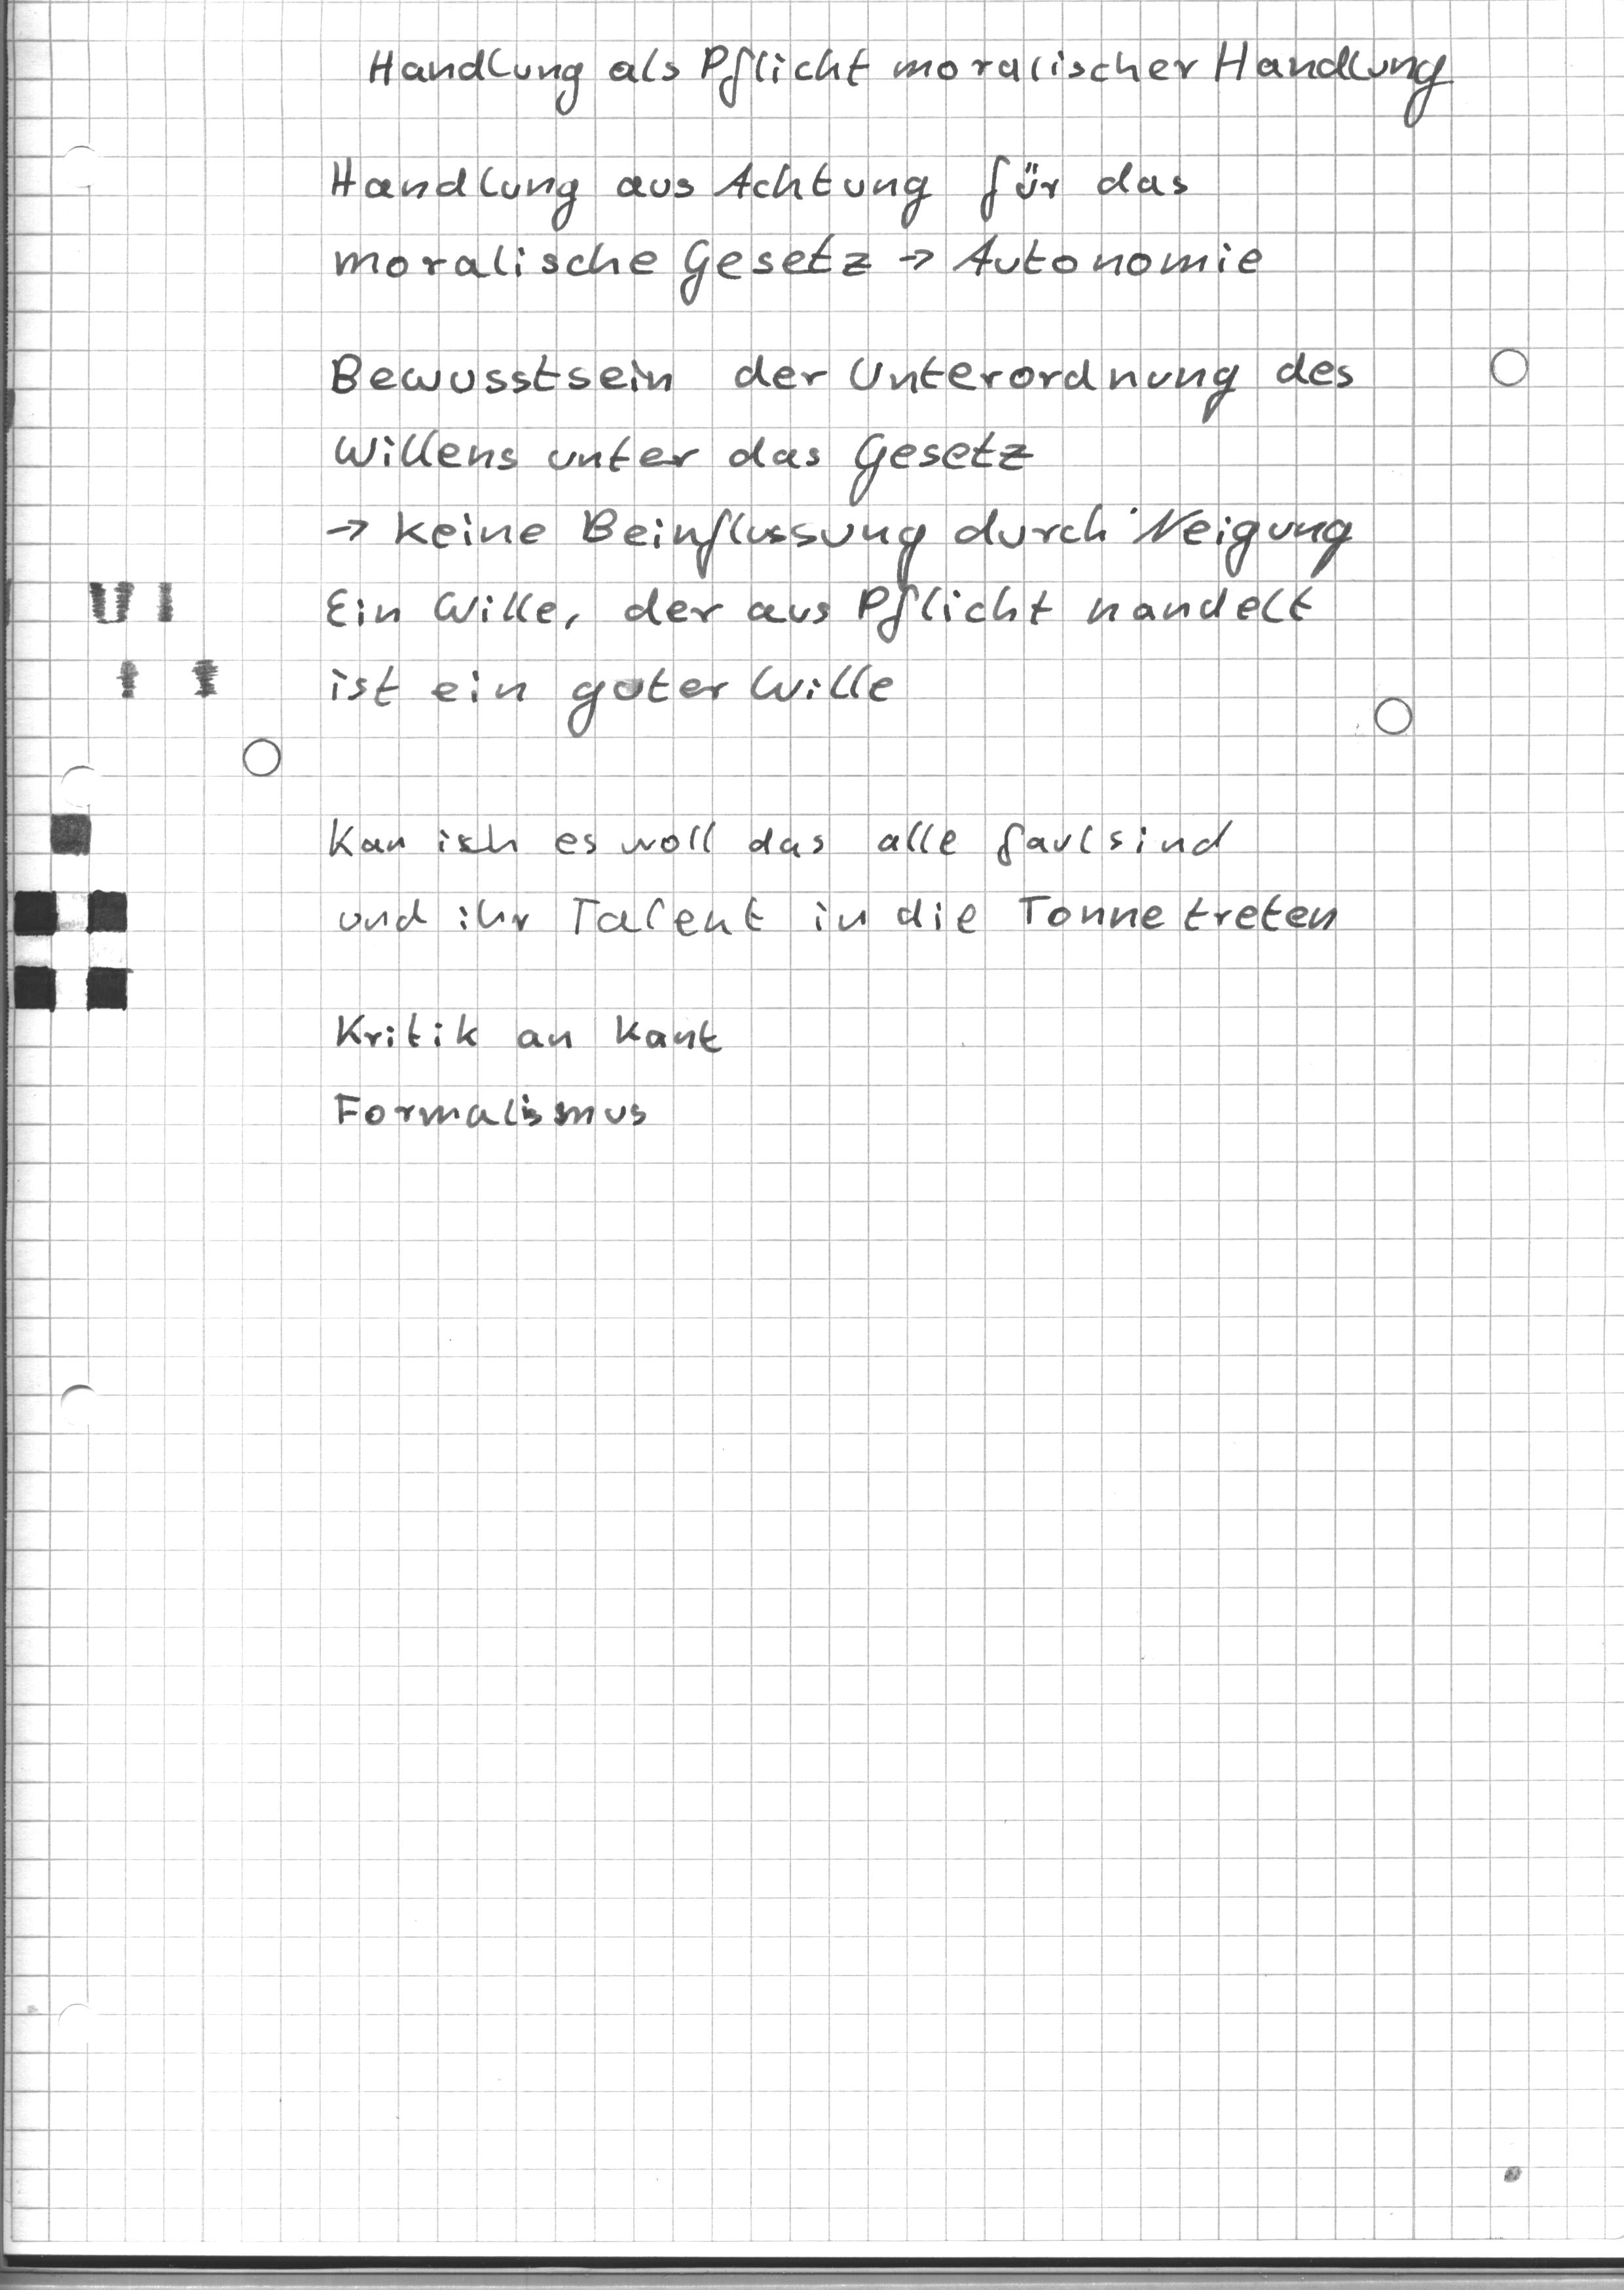 Handlung als Pflicht moralischer Handlung
Handlung aus Achtung für das
moralische Gesetz → Autonomie
Bewusstsein der Unterordnung des
Willens unter das Gesetz
→ keine Beinflussung durch Neigung
Ein Wille, der aus Pflicht handelt
ist ein guter Wille
Kan ich es woll das alle faul sind
und ihr Talent in die Tonne treten
Kritik an Kant
Formalismus